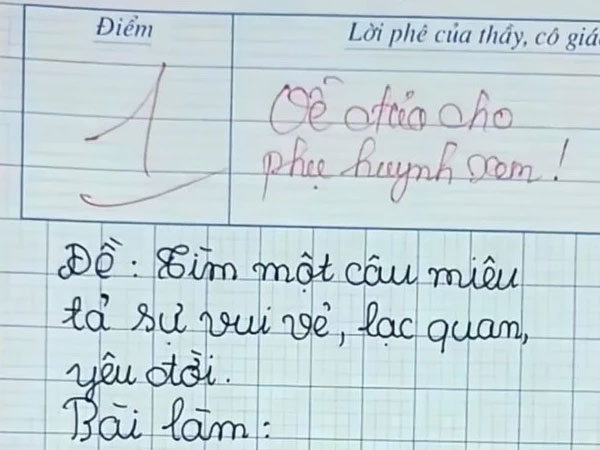 Điểm
Lời phê của thầy, cô giá
1
Về đưa cho
phụ huynh xem!
Đề: Tìm một câu miêu
tả sự vui vẻ, lạc quan,
yêu đời.
Bài làm: